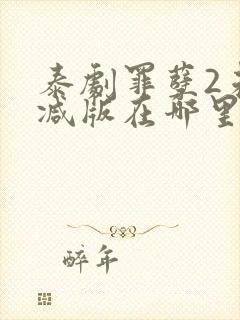 泰剧罪孽2未
减版在哪里
醉年